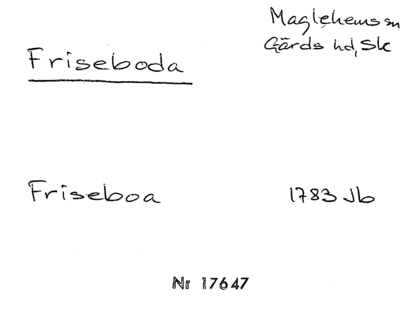 Maglehems sn
Gärds hd, Sk
Friseboda
Friseboa 1783 Jb
Nr 17647